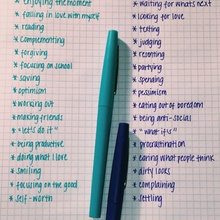 * enjoying the moment
* falling in love with myself
* reading
* complementing
* forgiving
* focusing on school
* saving
* optimism
* working out
* making friends
* "let's do it"
* being productive
* doing what I love
* smiling
* focusing on the good
* self-worth
* waiting for whats next
* looking for love
* texting
* judging
* resenting
* partying
* spending
* pessimism
* eating out of boredom
* being anti-social
* "what if's"
* procrastination
* caring what people think
* dirty looks
* complaining
* settling